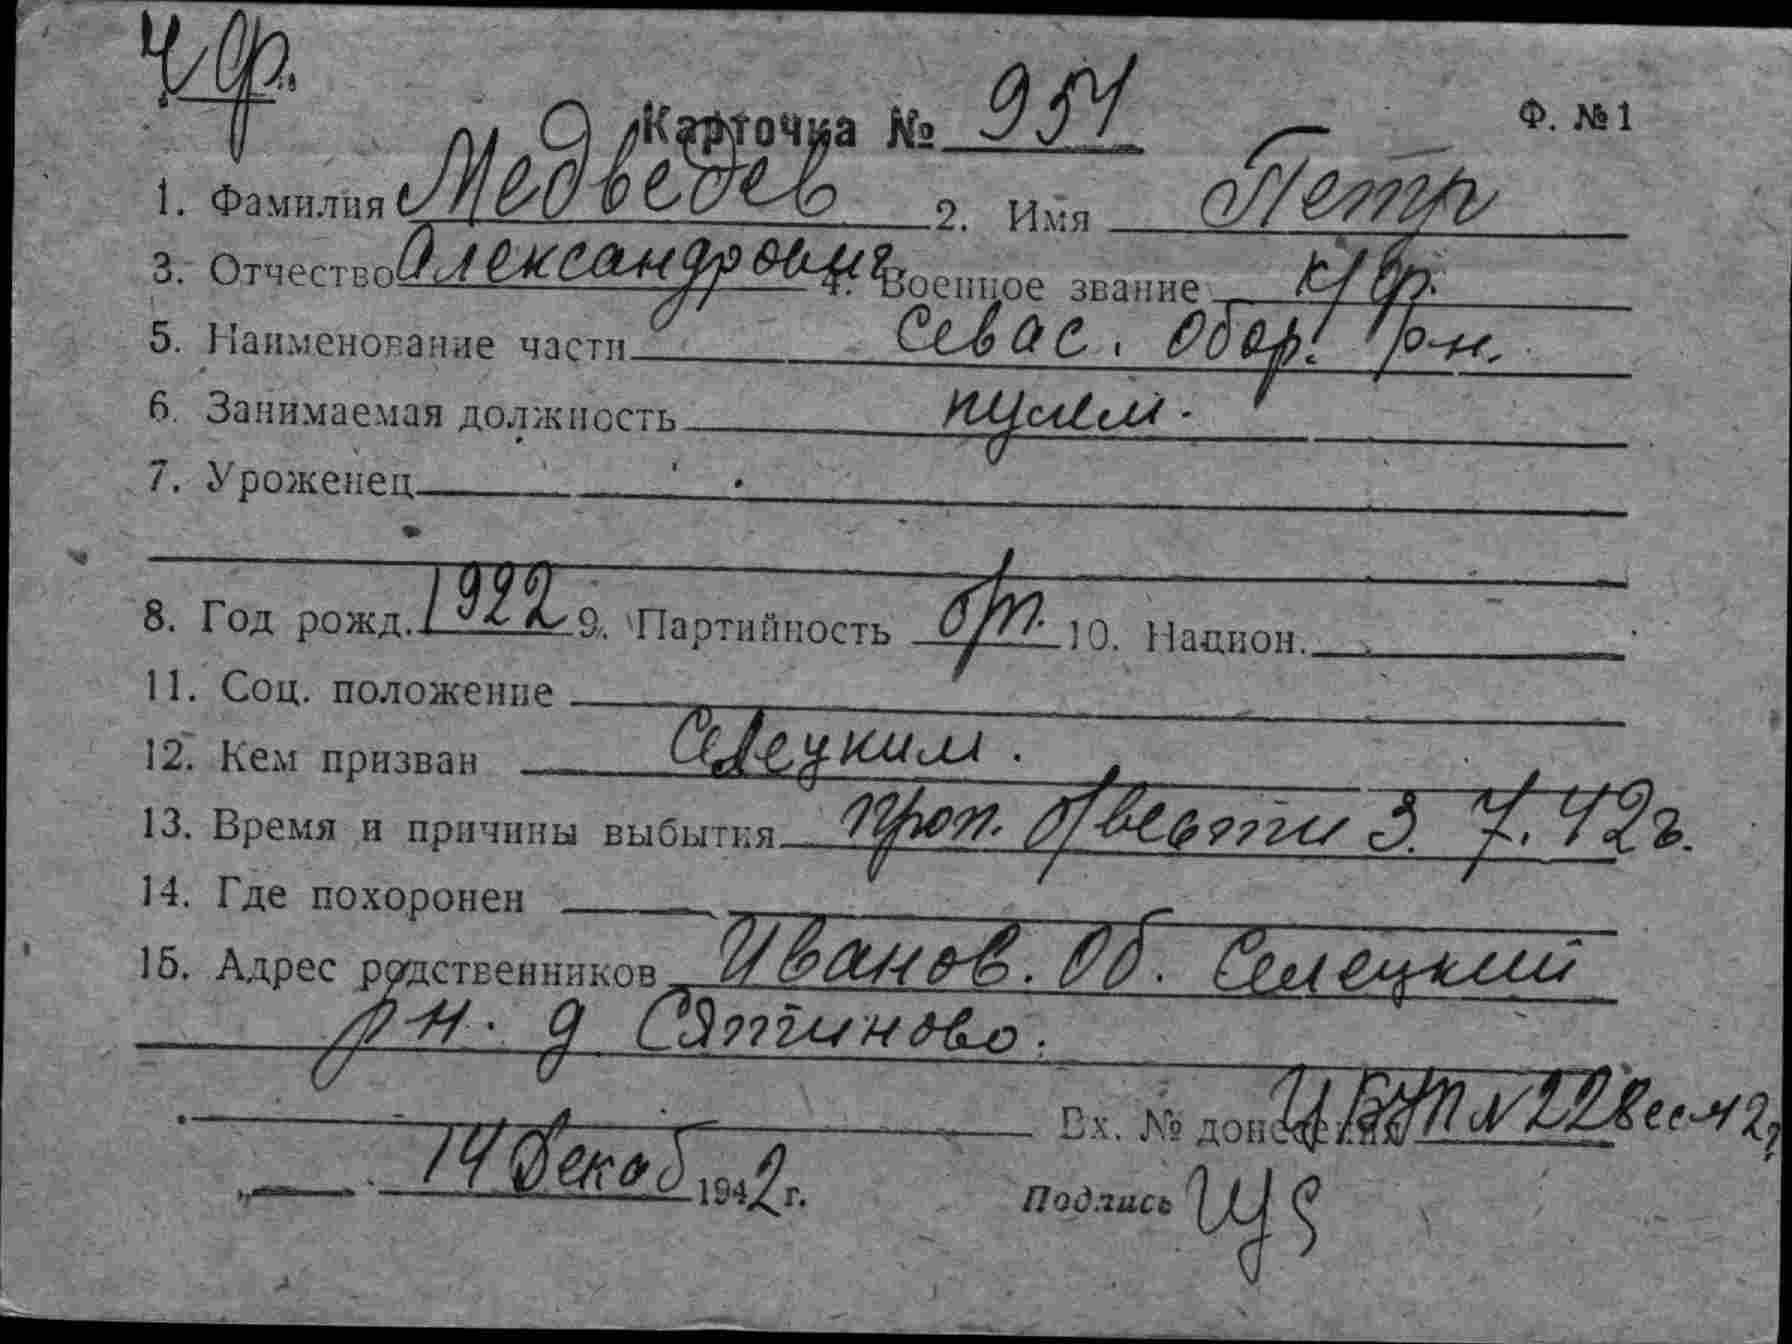 Ч ф.
Карточка № 954 Ф. №1
1. Фамилия Медведев 2. Имя Петр
3. Отчество Александрович 4. Военное звание к/ф.
5. Наименование части Севас. Обор. р-н.
6. Занимаемая должность пулем.
7. Уроженец
8. Год рожд. 1922 9. Партийность б/п. 10. Национ.
11. Соц. положение
12. Кем призван Селецким.
13. Время и причины выбытия проп. б/вести 3. 7. 42г.
14. Где похоронен
15. Адрес родственников Иванов. Об. Селецкий
рн. д Сяптиново.
Вх. № донесения №228сс-42г
14 Декаб 1942 г. Подпись